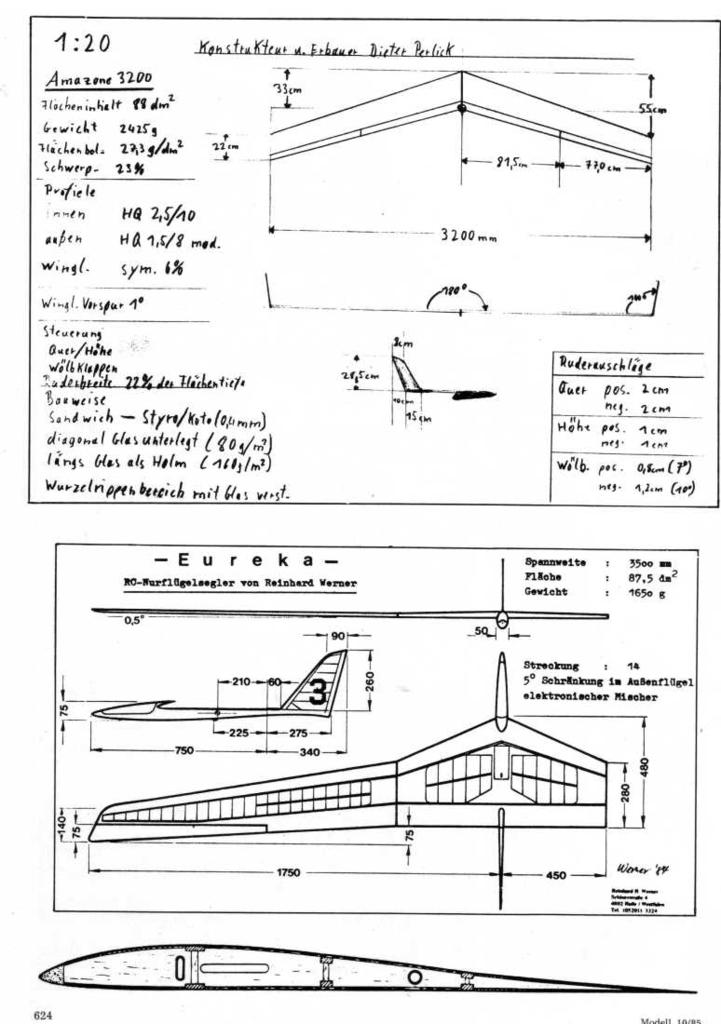 1:20
Konstrukteur u. Erbauer Dieter Perlick
Amazone 3200
Flächeninhalt 88 dm²
Gewicht 2425g
Flächenbel. 27,3 g/dm²
Schwerp. 23%
Profiele
innen HQ 2,5/10
außen HQ 1,5/8 mod.
Wingl. sym. 6%
Wingl. Vorspur 1°
Steuerung
Quer/Höhe
Wölbklappen
Ruderbreite 22% der Flächentiefe
Bauweise
Sandwich — Styro/Koto (0,4mm)
diagonal Glas unterlegt (80g/m²)
längs Glas als Holm (160g/m²)
Wurzelrippenbereich mit Glas verst.
33cm
55cm
22cm
81,5cm
77,0cm
3200mm
180°
8cm
28,5cm
10cm
15cm
Ruderauschläge
Quer pos. 2cm
neg. 2cm
Höhe pos. 1cm
neg. 1cm
Wölb. pos. 0,8cm (7°)
neg. 1,2cm (10°)
— E u r e k a —
RC-Nurflügelsegler von Reinhard Werner
Spannweite : 3500 mm
Fläche : 87,5 dm²
Gewicht : 1650 g
0,5°
50
90
210
60
260
3
75
225
275
750
340
Streckung : 14
5° Schränkung im Außenflügel
elektronischer Mischer
480
280
140
75
75
1750
450
Werner '84
Reinhard H Werner
4802 Halle / Westfalen
624
Modell 10/85